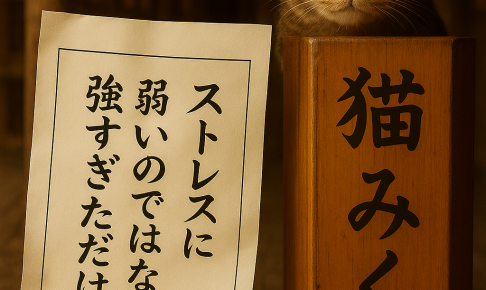 ストレスに
弱いのではな
強すぎただけ
猫みく